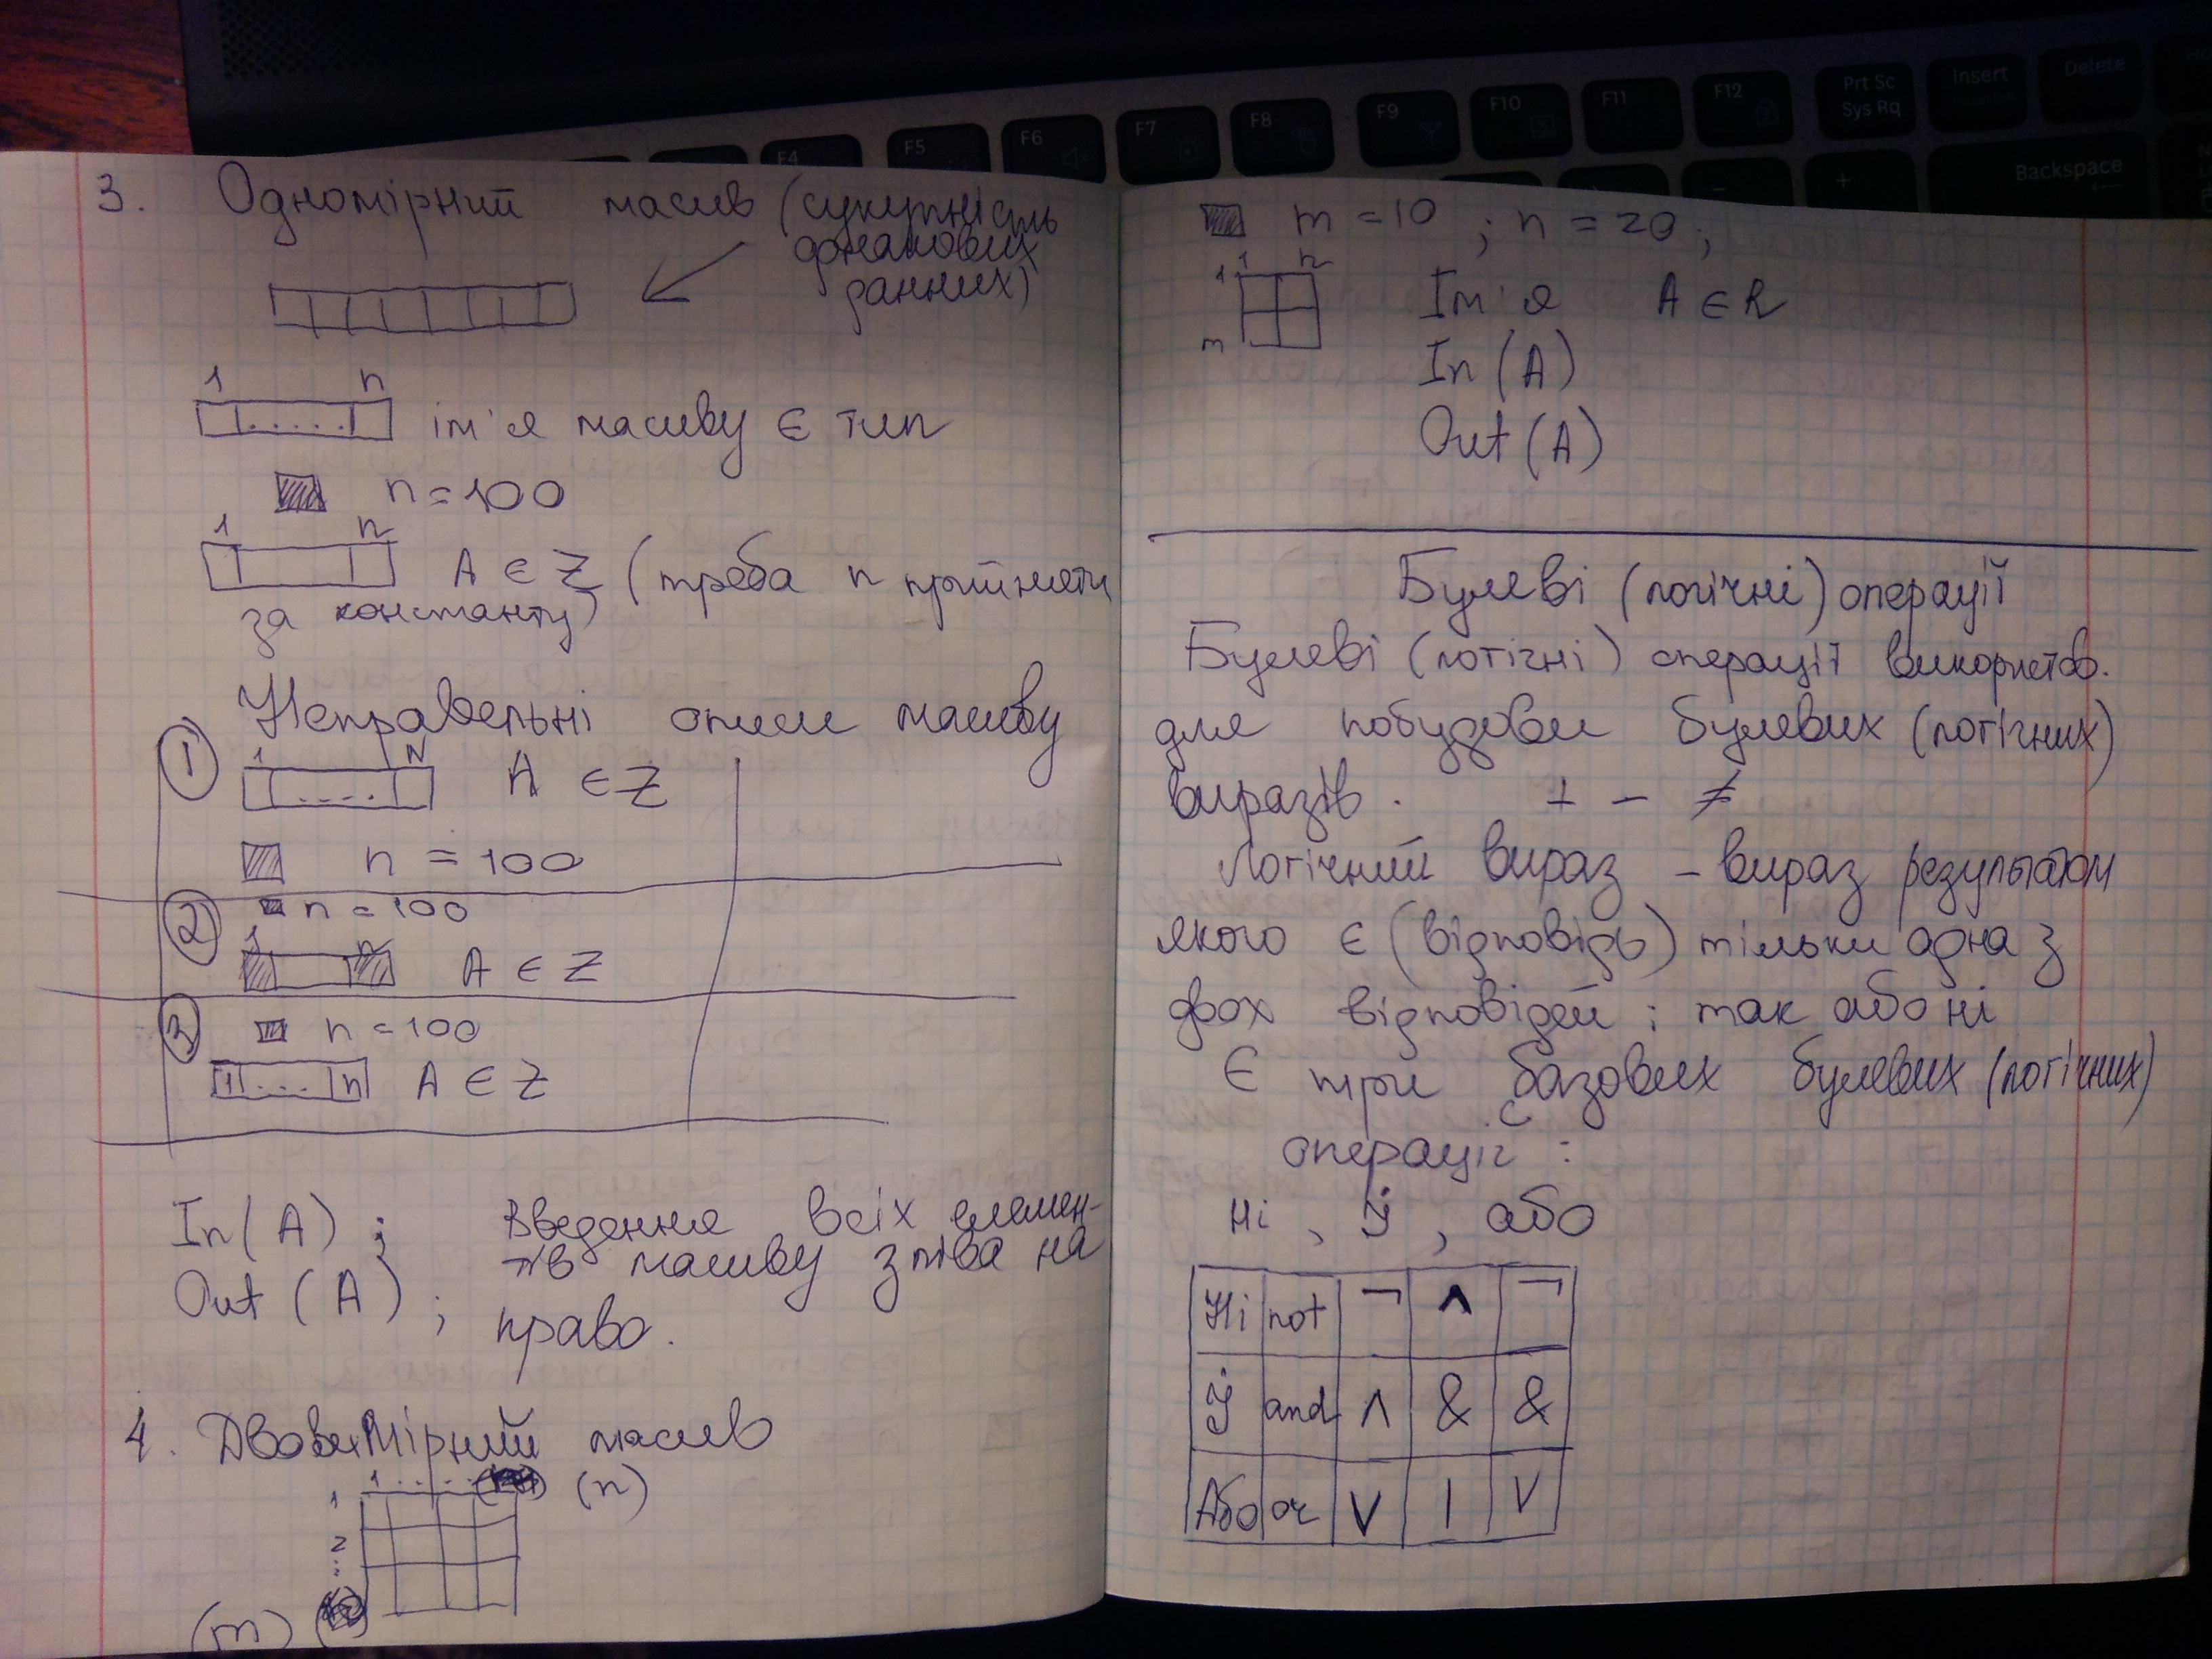 F4 F5 F6 F7 F8 F9 F10 F11 F12 Prt Sc Sys Rq Insert Delete
Backspace
3. Одномірний масив (сукупність
однакових
данних)
1 n
ім'я масиву є тип
n = 100
1 n
A ∈ Z (треба n прийняти
за константу)
Неправельні описи масиву
1 1 N
..... A ∈ Z
n = 100
2 n = 100
1 n
A ∈ Z
3 n = 100
1 ... n A ∈ Z
In(A) ; Введення всіх елемен-
тів масиву зліва на
Out(A) ; право.
4. Двовимірний масив
1 .... (n)
1
2
...
(m)
m = 10 ; n = 20 ;
1 n
1 Ім'я A ∈ R
m In(A)
Out(A)
Булеві (логічні) операції
Булеві (логічні) операції використов.
для побудови булевих (логічних)
виразів. + - ≠
Логічний вираз – вираз результатом
якого є (відповідь) тільки одна з
двох відповідей : так або ні
Є три базових булевих (логічних)
операції :
Ні , Й , або
Ні not ¬ ^ ¬
Й and ∧ & &
Або or ∨ | ∨